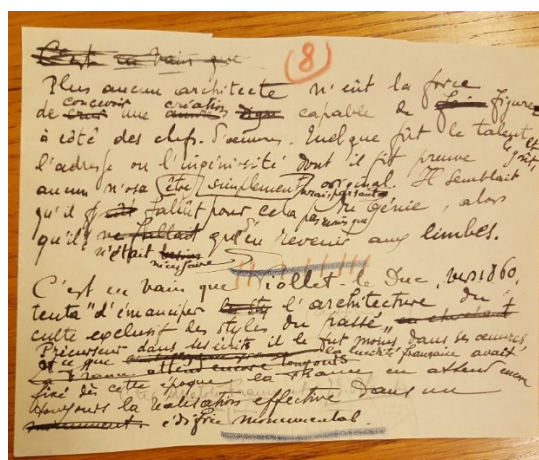 C'est en vain que
8
Plus aucun architecte n'eût la force
de concevoir une création capable de figurer
à côté des chefs-d'oeuvres. Quelque fût le talent,
l'adresse ou l'ingéniosité dont il fît preuve
aucun n'osa être simplement original. Il semblait
qu'il fallût pour cela du génie, alors
qu'il n'était nécessaire qu'en revenir aux limbes.
C'est en vain que Viollet-le-Duc, vers 1860,
tenta "d'émanciper l'architecture du
culte exclusif des styles du passé"
Précurseur dans ses écrits il le fut moins dans ses oeuvres
et ce que la lucidité française avait
fixé dès cette époque la France en attend encore
toujours la réalisation effective dans un
édifice monumental.